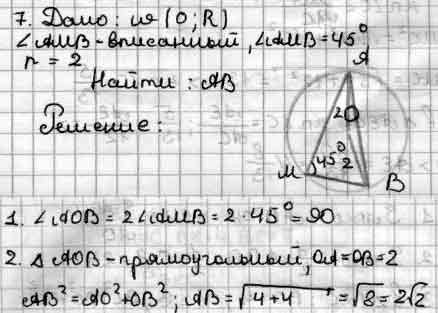 7. Дано: ω (O; R)
∠AMB - вписанный, ∠AMB = 45°
r = 2
Найти: AB
Решение:
A
2
O
45°
2
M
B
1. ∠AOB = 2∠AMB = 2·45° = 90
2. △ AOB - прямоугольный, OA = OB = 2
AB² = AO² + OB²; AB = √4+4 = √8 = 2√2